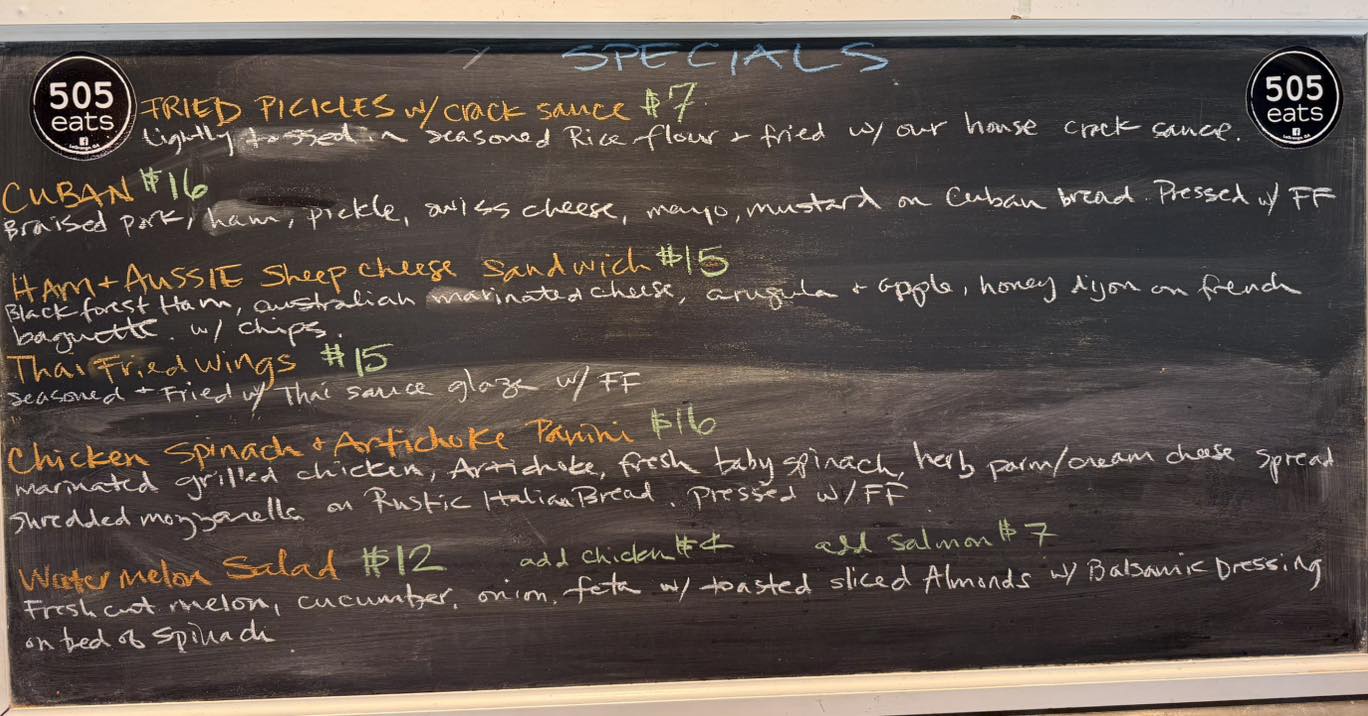 SPECIALS
505
eats
505
eats
FRIED PICKLES w/ crack sauce $7
lightly tossed in seasoned Rice flour + fried w/ our house crack sauce.
CUBAN $16
Braised pork, ham, pickle, swiss cheese, mayo, mustard on Cuban bread. Pressed w/ FF
HAM + AUSSIE Sheep cheese Sandwich $15
Black forest Ham, australian marinated cheese, arugula + apple, honey dijon on french
baguette w/ chips.
Thai Fried Wings $15
seasoned + Fried w/ Thai sauce glaze w/ FF
Chicken Spinach + Artichoke Panini $16
marinated grilled chicken, Artichoke, fresh baby spinach, herb parm/cream cheese spread
shredded mozzarella on Rustic Italian Bread. pressed w/ FF
Watermelon Salad $12 add chicken $4 add Salmon $7
Fresh cut melon, cucumber, onion, feta w/ toasted sliced Almonds w/ Balsamic Dressing
on bed of spinach